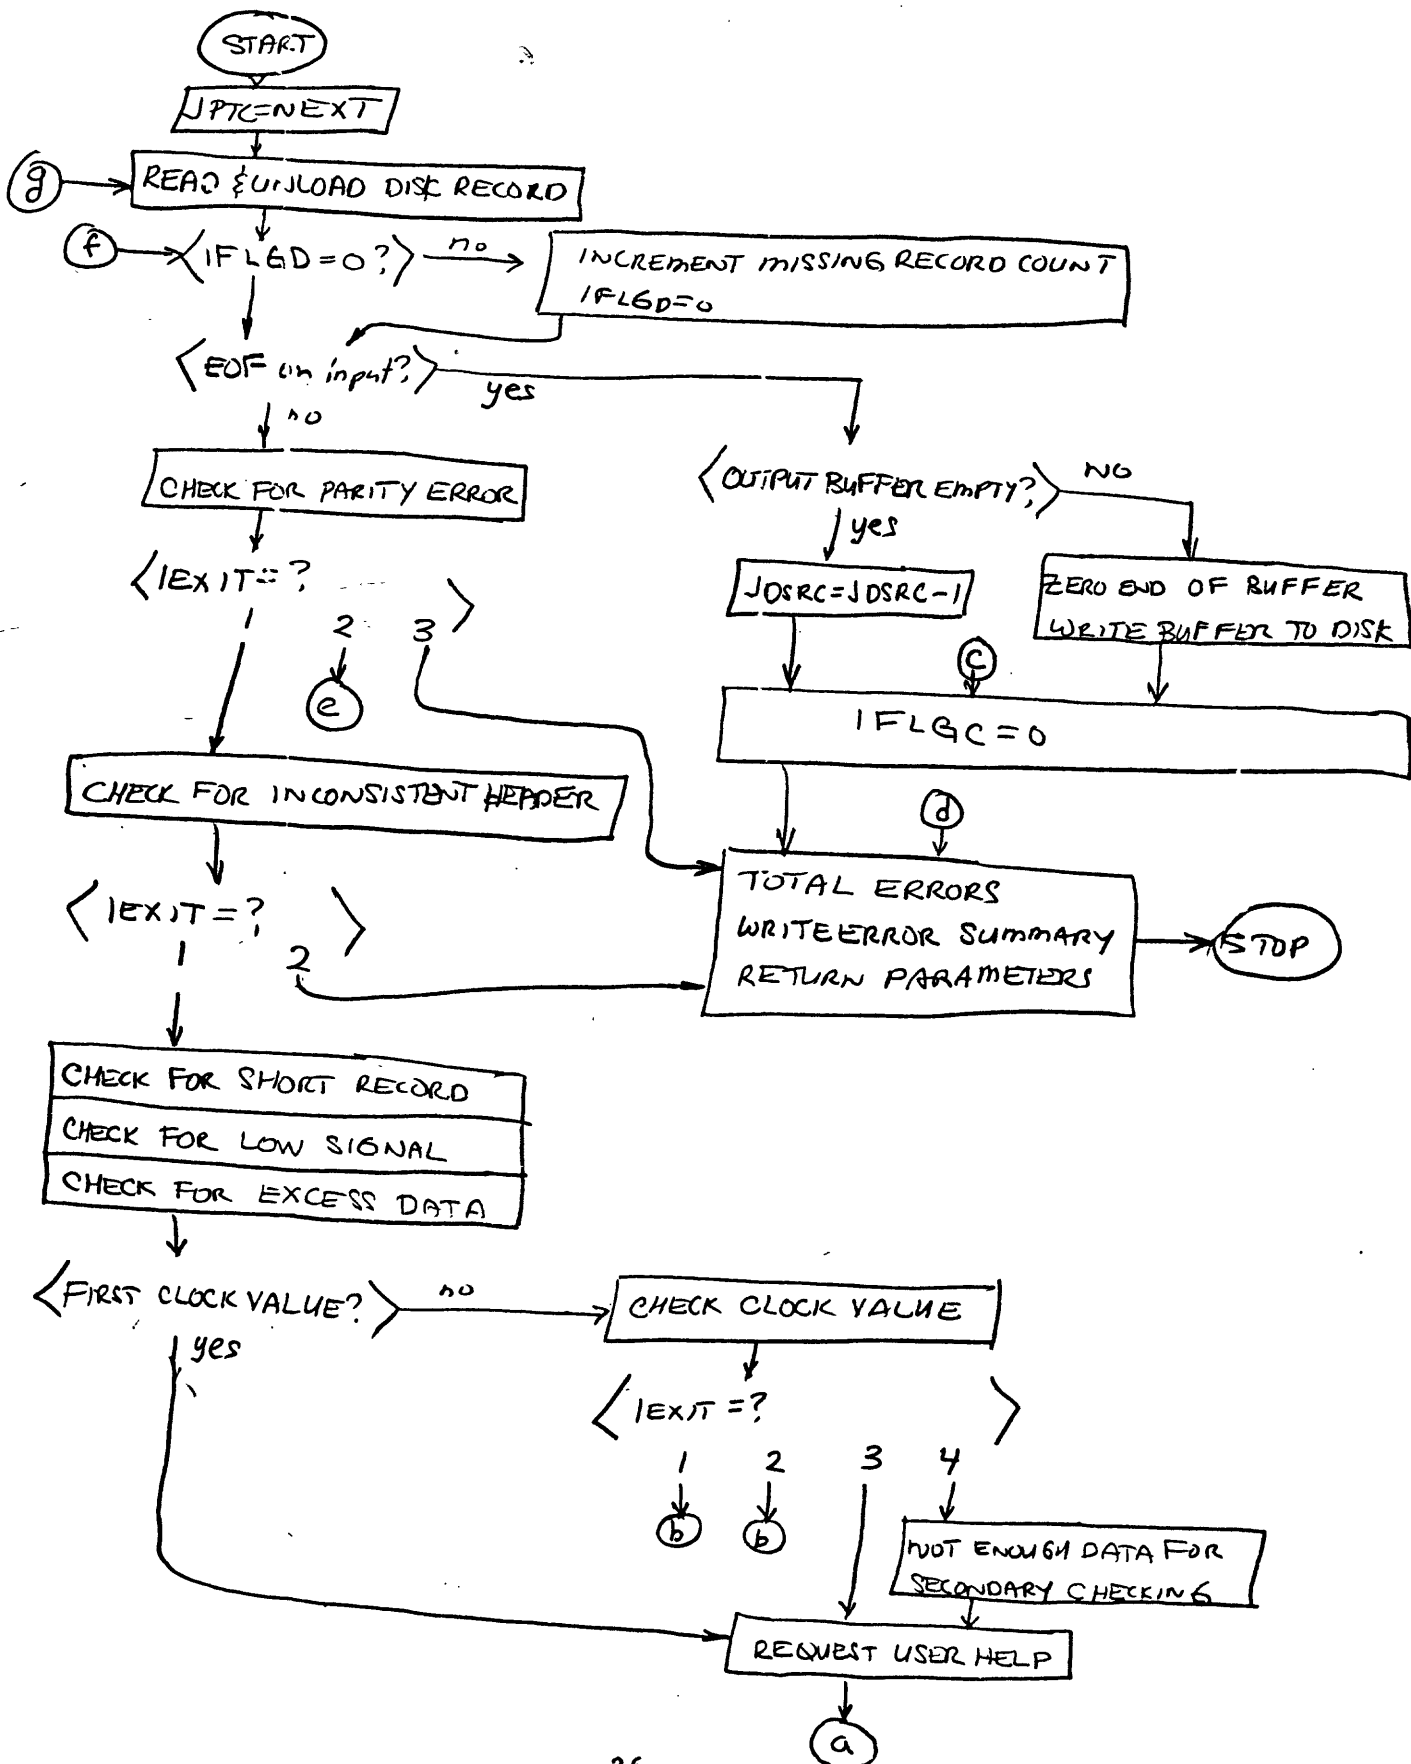 START
JPTC=NEXT
g
READ & UNLOAD DISK RECORD
f
IFLGD=0?
no
INCREMENT MISSING RECORD COUNT
IFLGD=0
EOF on input?
yes
no
CHECK FOR PARITY ERROR
OUTPUT BUFFER EMPTY?
NO
yes
IEXIT=?
1 2 3
e
JDSRC=JDSRC-1
ZERO END OF BUFFER
WRITE BUFFER TO DISK
c
IFLGC=0
CHECK FOR INCONSISTENT HEADER
d
IEXIT=?
1 2
TOTAL ERRORS
WRITE ERROR SUMMARY
RETURN PARAMETERS
STOP
CHECK FOR SHORT RECORD
CHECK FOR LOW SIGNAL
CHECK FOR EXCESS DATA
FIRST CLOCK VALUE?
no
yes
CHECK CLOCK VALUE
IEXIT=?
1 2 3 4
b b
NOT ENOUGH DATA FOR
SECONDARY CHECKING
REQUEST USER HELP
a